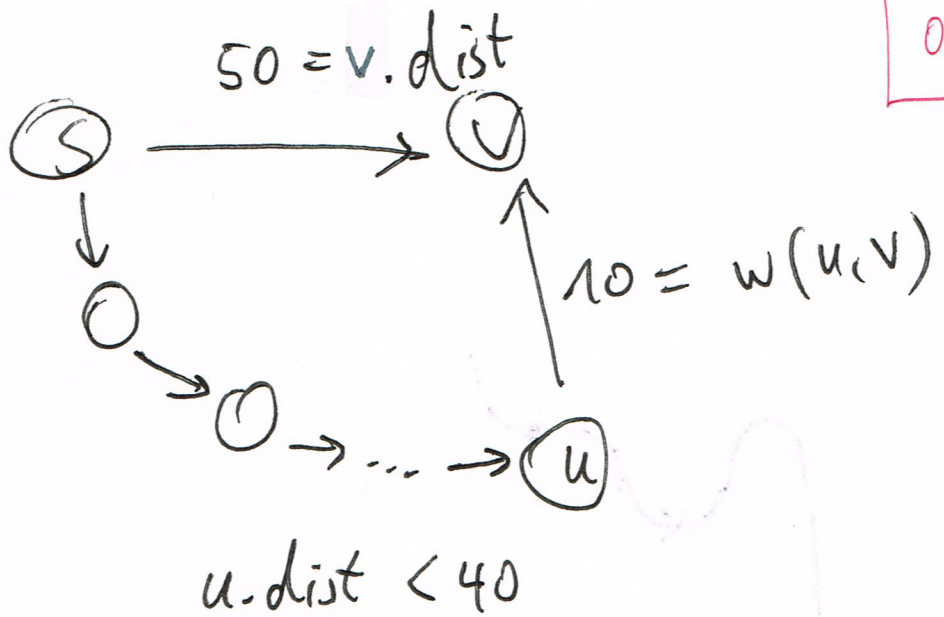 50 = v.dist
0
S
V
10 = w(u,v)
...
u
u.dist < 40